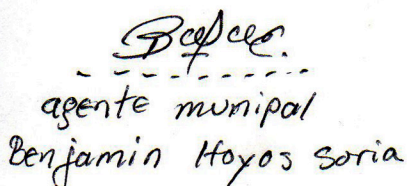 agente munipal
Benjamin Hoyos Soria